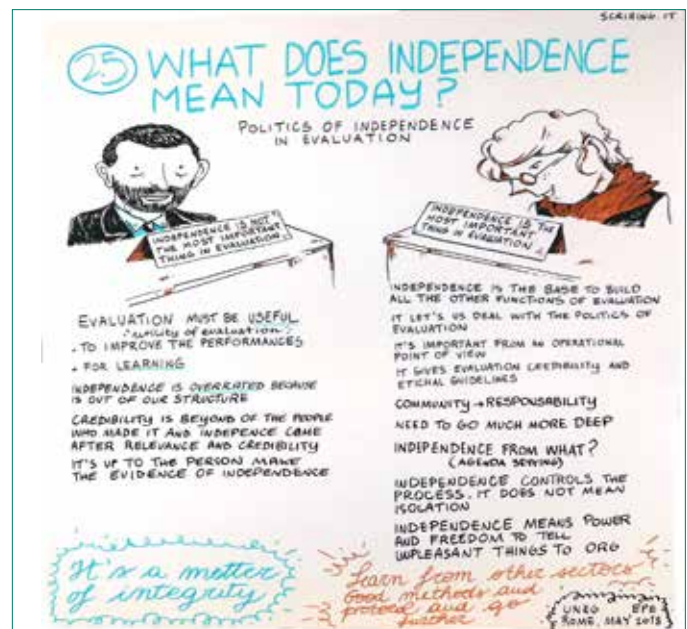 SCRIBING.IT
25 WHAT DOES INDEPENDENCE
MEAN TODAY?
POLITICS OF INDEPENDENCE
IN EVALUATION
INDEPENDENCE IS NOT
THE MOST IMPORTANT
THING IN EVALUATION
EVALUATION MUST BE USEFUL
utility of evaluation
• TO IMPROVE THE PERFORMANCES
• FOR LEARNING
INDEPENDENCE IS OVERRATED BECAUSE
IS OUT OF OUR STRUCTURE
CREDIBILITY IS BEYOND OF THE PEOPLE
WHO MADE IT AND INDEPENCE CAME
AFTER RELEVANCE AND CREDIBILITY
IT'S UP TO THE PERSON MAKE
THE EVIDENCE OF INDEPENDENCE
It's a matter
of integrity
INDEPENDENCE IS THE
MOST IMPORTANT
THING IN EVALUATION
INDEPENDENCE IS THE BASE TO BUILD
ALL THE OTHER FUNCTIONS OF EVALUATION
IT LET'S US DEAL WITH THE POLITICS OF
EVALUATION
IT'S IMPORTANT FROM AN OPERATIONAL
POINT OF VIEW
IT GIVES EVALUATION CREDIBILITY AND
ETICHAL GUIDELINES
COMMUNITY → RESPONSABILITY
NEED TO GO MUCH MORE DEEP
INDEPENDENCE FROM WHAT?
(AGENDA SETTING)
INDEPENDENCE CONTROLS THE
PROCESS. IT DOES NOT MEAN
ISOLATION
INDEPENDENCE MEANS POWER
AND FREEDOM TO TELL
UNPLEASANT THINGS TO ORG
Learn from other sectors
Good methods and
protocol and go
further
UNEG EPE
ROME, MAY 2018